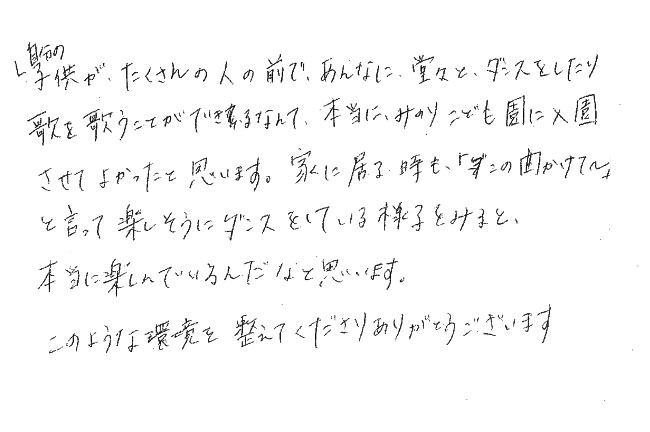 自分の
子供が、たくさんの人の前で、あんなに、堂々と、ダンスをしたり
歌を歌うことができるなんて、本当に、みのりこども園に入園
させてよかったと思います。家に居る時も、「この曲かけて〜」
と言って楽しそうにダンスをしている様子をみると、
本当に楽しんでいるんだなと思います。
このような環境を整えてくださりありがとうございます